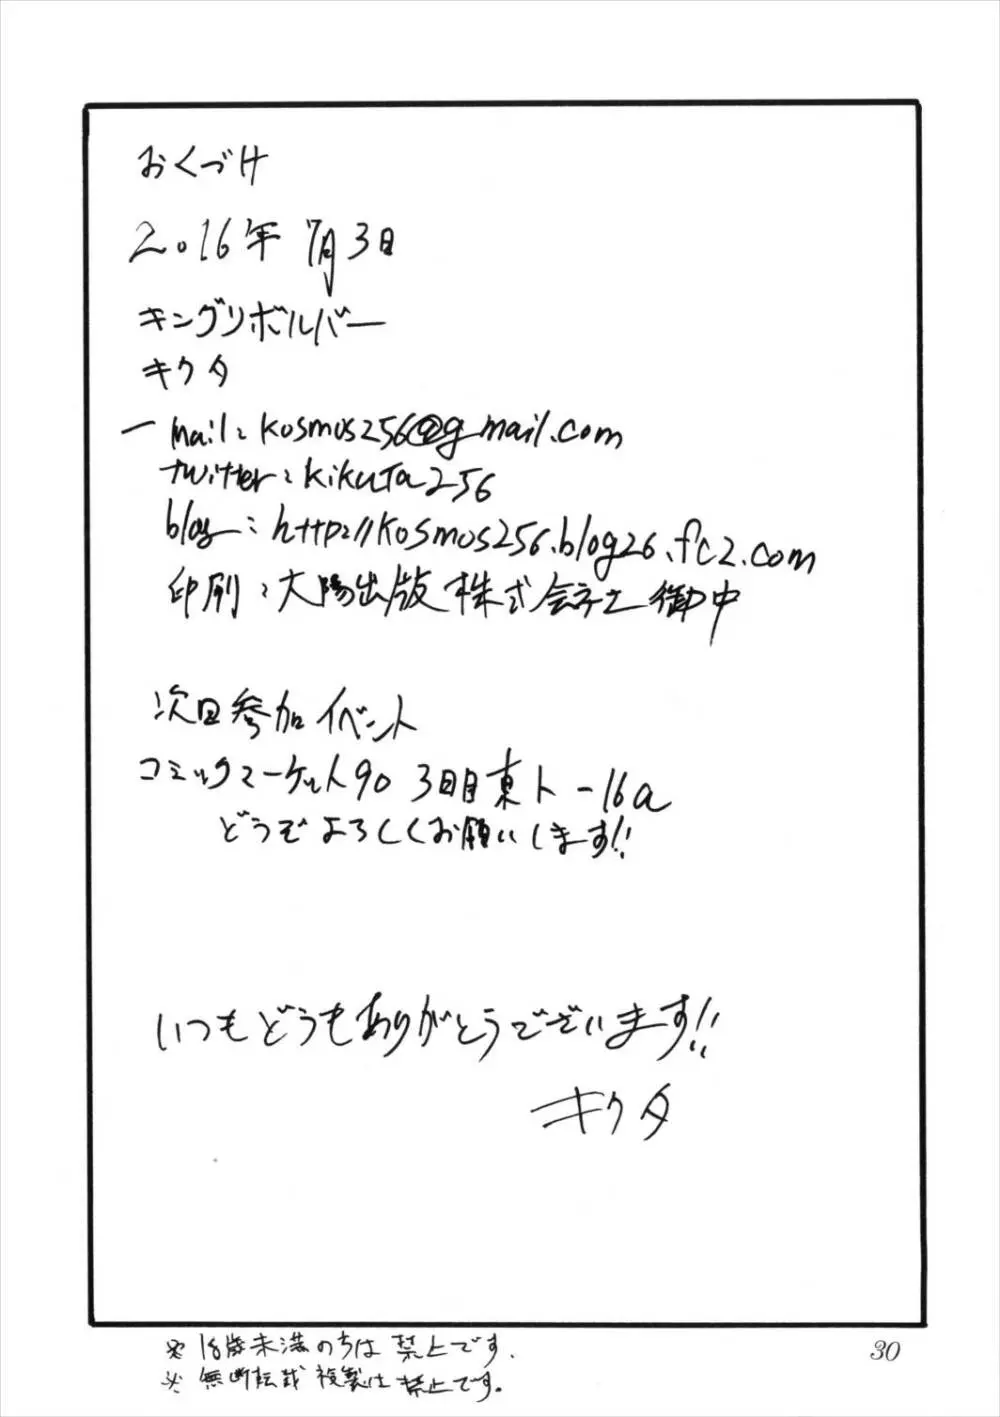 おくづけ
2016年 7月3日
キングリボルバー
キクタ
ー mail: kosmos256@gmail.com
twitter: kikuta256
blog: http://kosmos256.blog26.fc2.com
印刷: 大陽出版 株式会社 御中
次回参加イベント
コミックマーケット90 3日目東ト-16a
どうぞよろしくお願いします!!
いつもどうもありがとうございます!!
キクタ
※ 18歳未満の方は 禁止です.
※ 無断転載 複製は 禁止です。
30